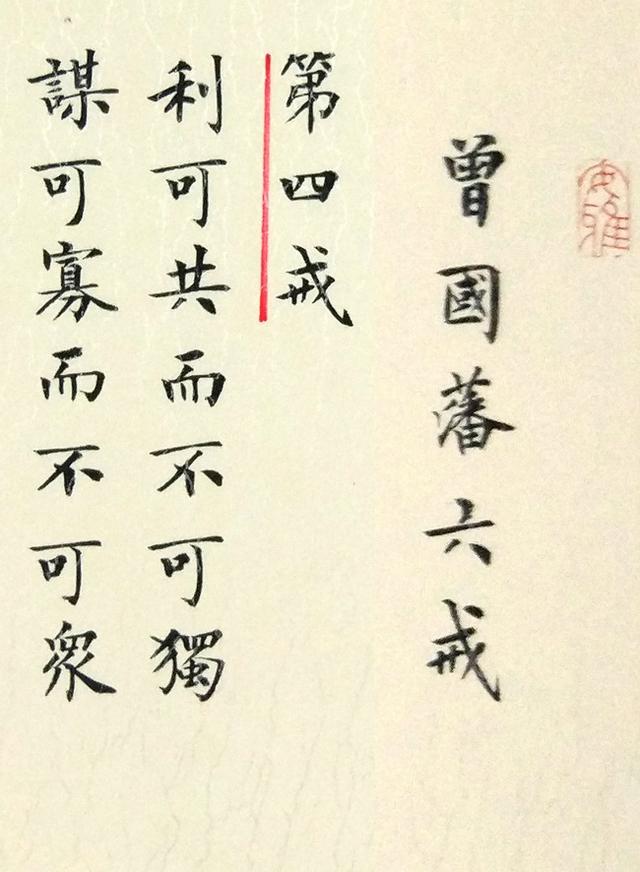 曾國藩六戒
第四戒
利可共而不可獨
謀可寡而不可眾